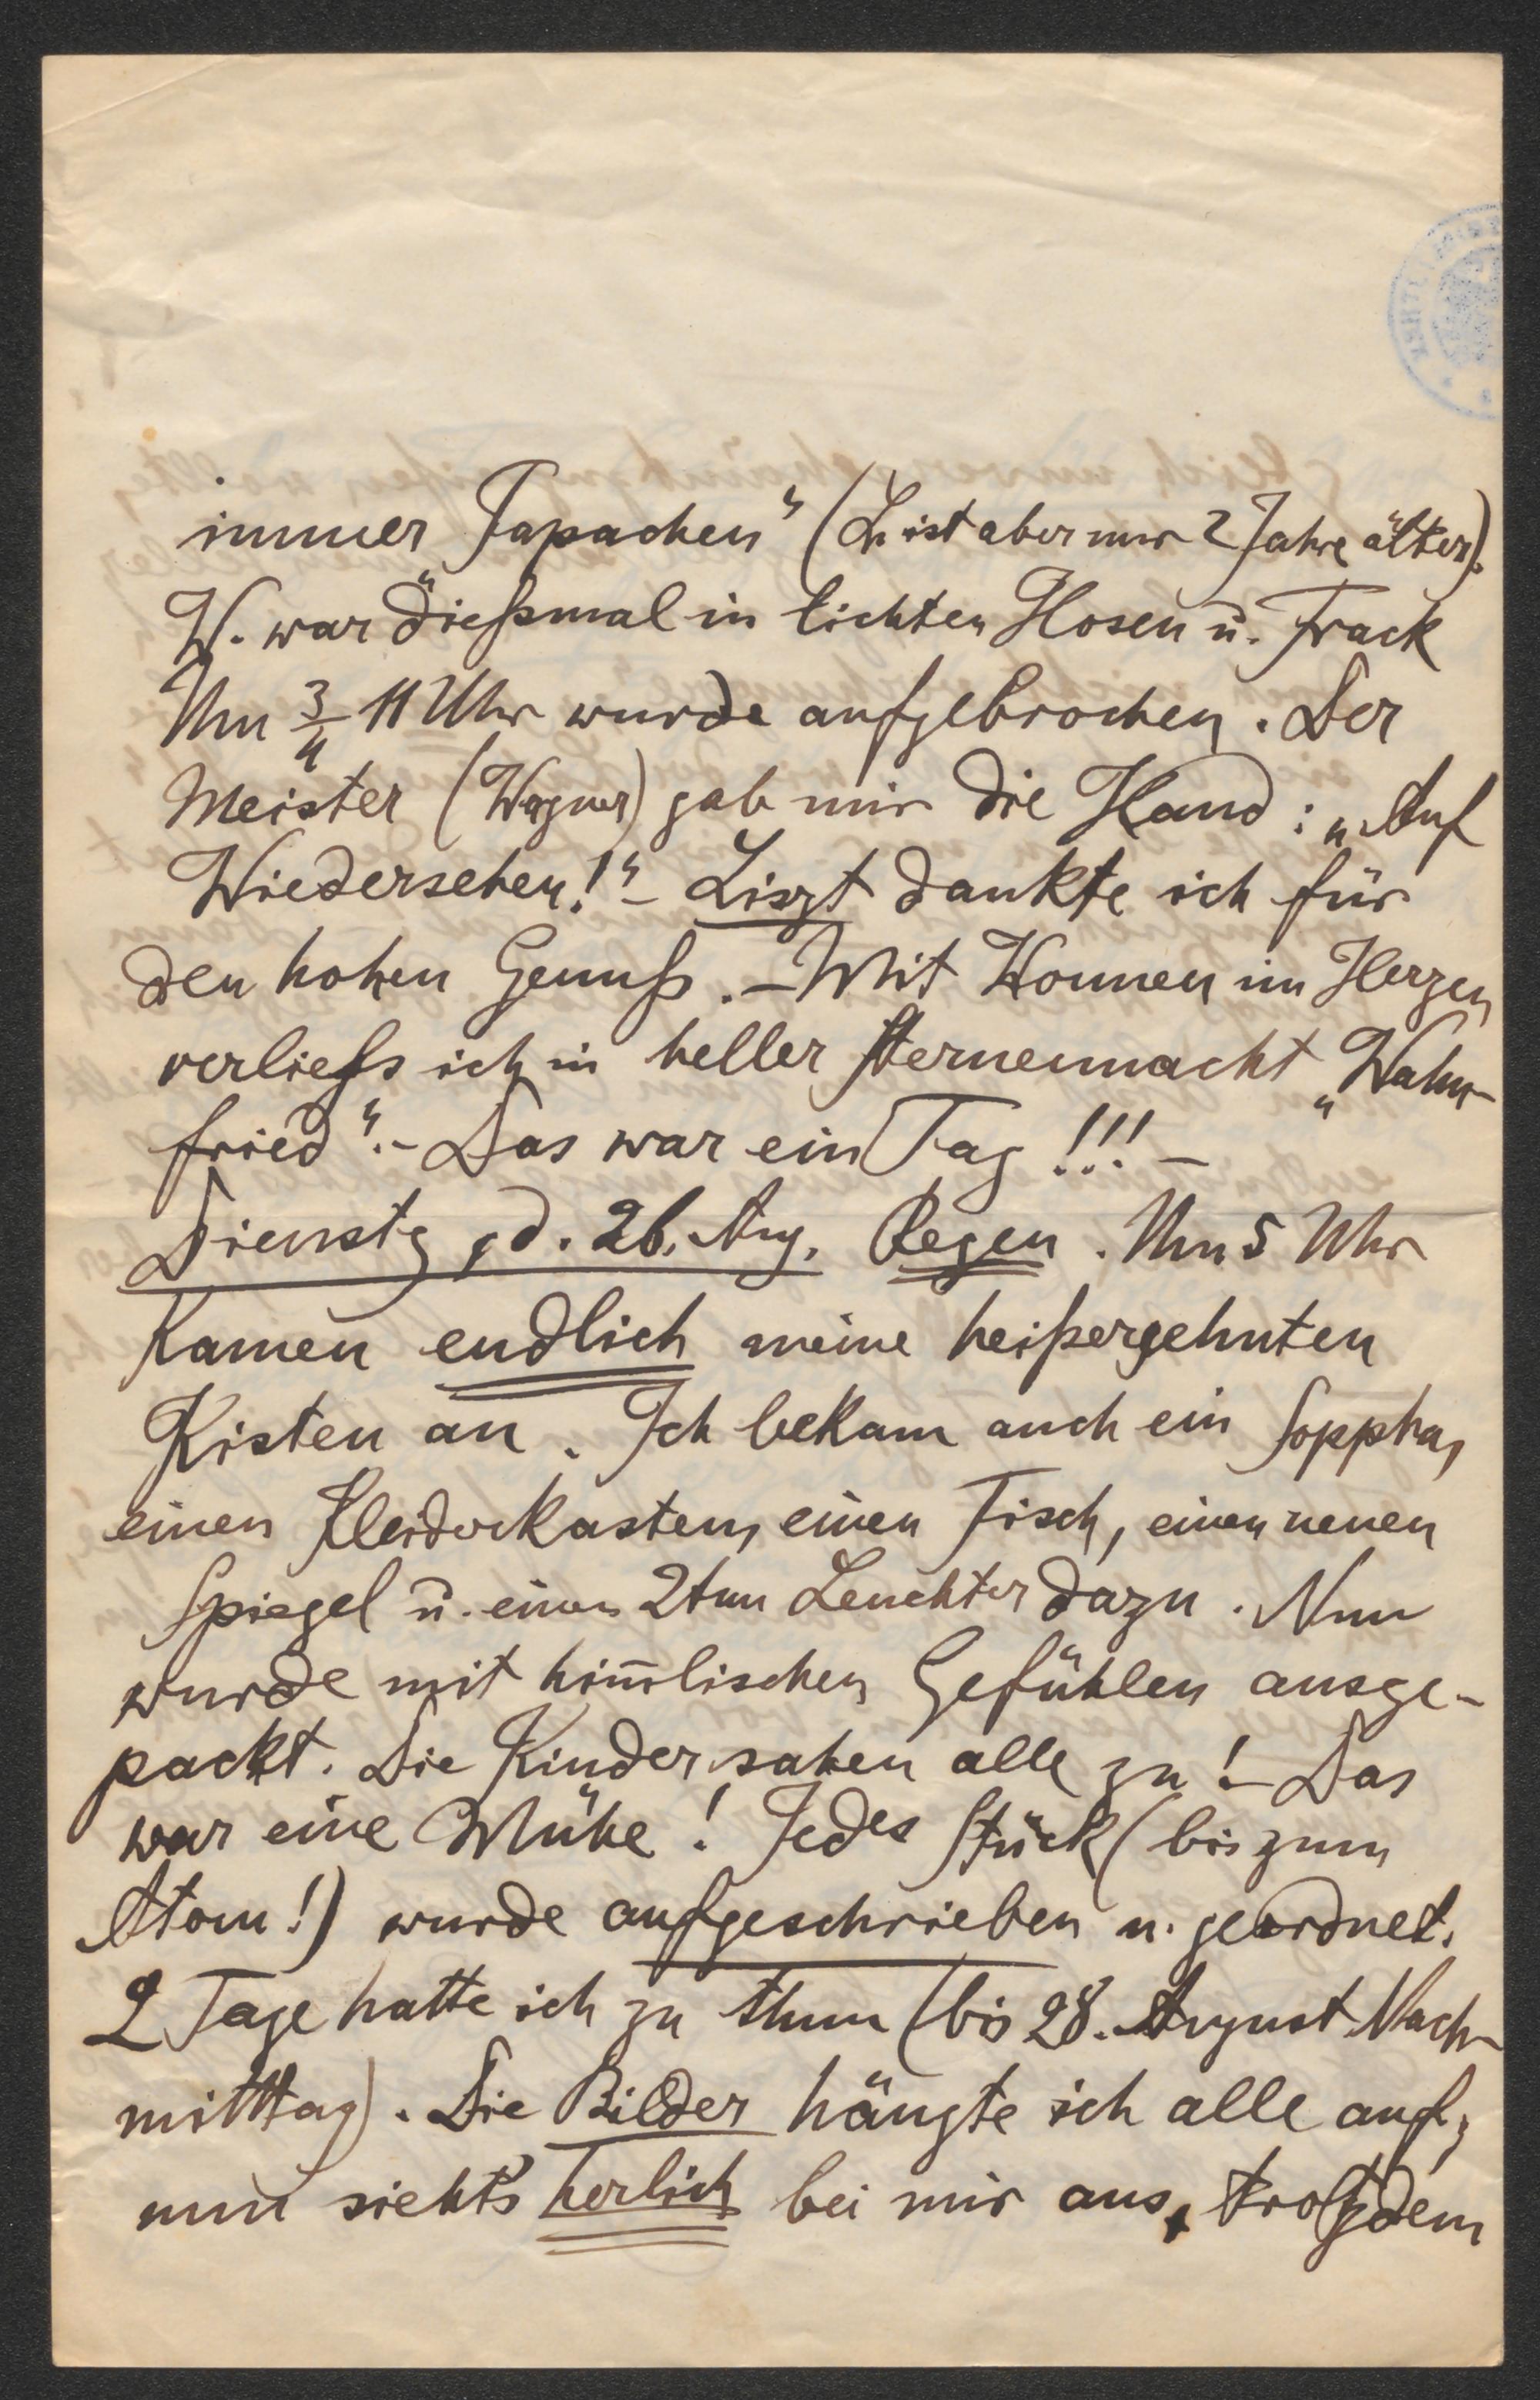 immer „Papachen“ (L. ist aber nur 2 Jahre älter).
W. war dießmal in lichten Hosen u. Frack
Um 3/4 11 Uhr wurde aufgebrochen. Der
Meister (Wagner) gab mir die Hand: „Auf
Wiedersehen!“ – Liszt dankte ich für
den hohen Genuß. – Mit Wonnen im Herzen
verließ ich in heller Sternennacht „Wahn-
fried“. – Das war ein Tag!!! –
Dienstg, d. 26. Aug. Regen. Um 5 Uhr
kamen endlich meine heißersehnten
Kisten an. Ich bekam auch ein Soppha,
einen Kleiderkasten, einen Tisch, einen neuen
Spiegel u. einen 2ten Leuchter dazu. Nun
wurde mit him̅lischen Gefühlen ausge-
packt. Die Kinder sahen alle zu! – Das
war eine Mühe! Jedes Stück (bis zum
Atom!) wurde aufgeschrieben u. geordnet.
2 Tage hatte ich zu thun (bis 28. August Nach-
mitttag). Die Bilder hängte ich alle auf,
nun sieht's herlich bei mir aus, trotzdem